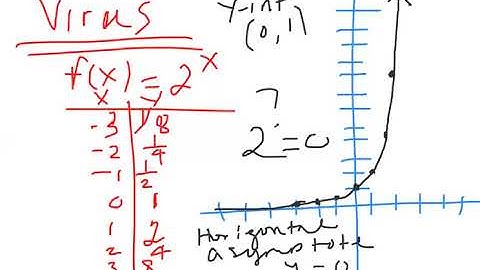 Virus
f(x) = 2^x
x y
-3 1/8
-2 1/4
-1 1/2
0 1
1 2
2 4
3 8
y-int
(0, 1)
2^? = 0
Horizontal
asymptote
y = 0